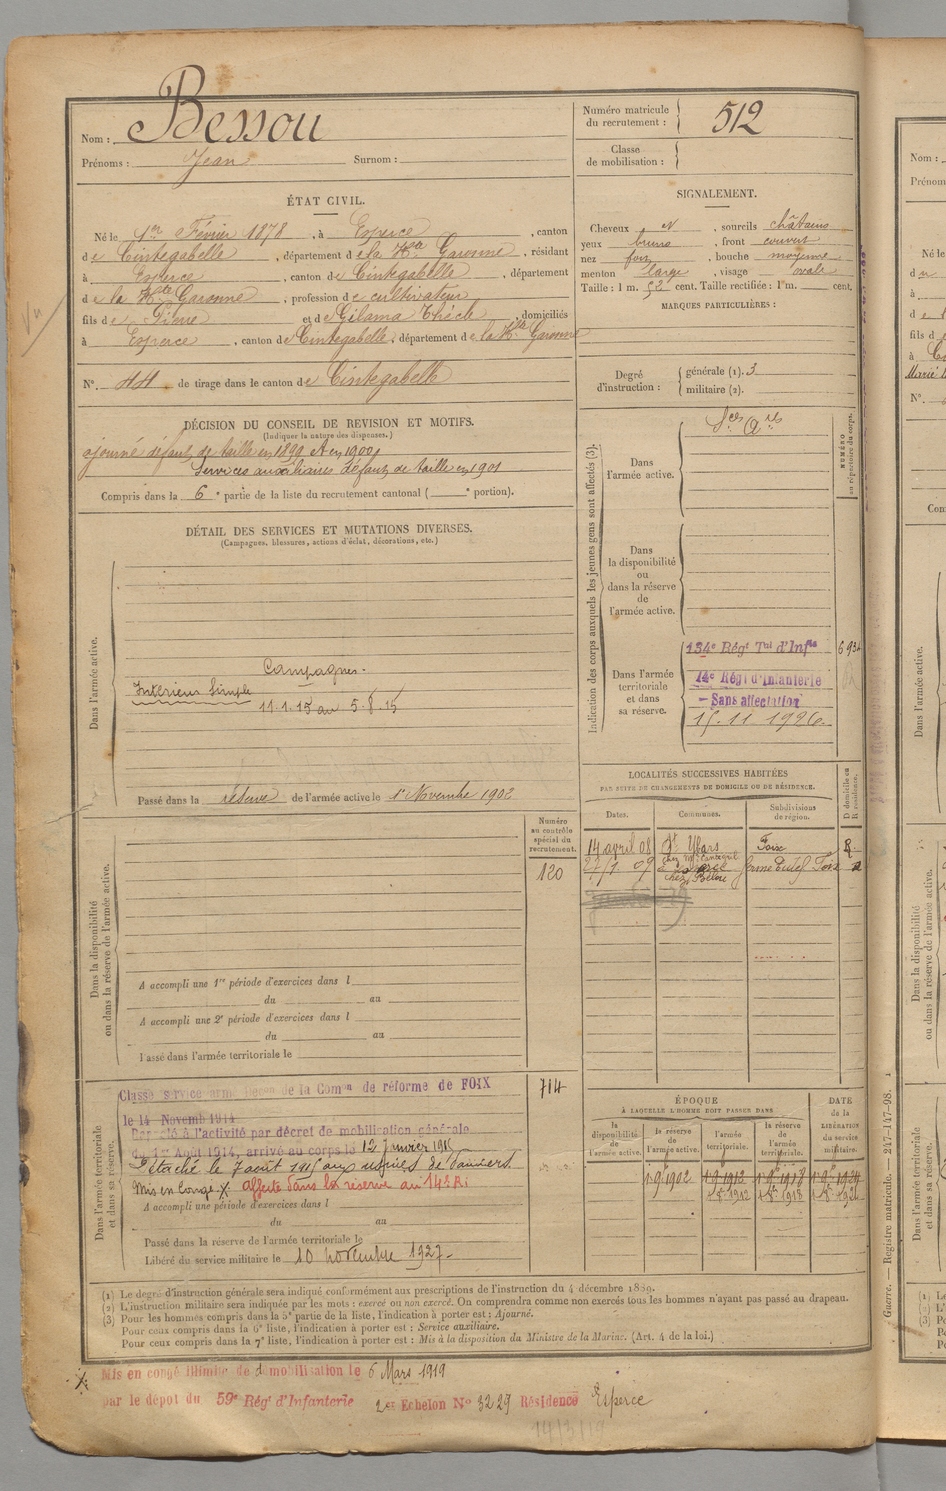 Nom : Bessou
Prénoms : Jean Surnom :
Numéro matricule du recrutement : 512
Classe de mobilisation :
ÉTAT CIVIL.
Né le 1er Février 1878, à Esperce, canton
de Cintegabelle, département de la Hte Garonne, résidant
à Esperce, canton de Cintegabelle, département
de la Hte Garonne, profession de cultivateur
fils de Pierre et de Gilama Thècle, domiciliés
à Esperce, canton de Cintegabelle, département de la Hte Garonne
N°. 44 de tirage dans le canton de Cintegabelle
SIGNALEMENT.
Cheveux N, sourcils châtains
yeux bruns, front couvert
nez fort, bouche moyenne
menton large, visage ovale
Taille : 1 m. 52 cent. Taille rectifiée : 1 m. cent.
MARQUES PARTICULIÈRES :
Degré d'instruction : générale (1). 3
militaire (2).
DÉCISION DU CONSEIL DE REVISION ET MOTIFS.
(Indiquer la nature des dispenses.)
ajourné défaut de taille en 1899 et en 1900
Services auxiliaires défaut de taille en 1901
Compris dans la 6e partie de la liste du recrutement cantonal ( e portion).
DÉTAIL DES SERVICES ET MUTATIONS DIVERSES.
(Campagnes, blessures, actions d'éclat, décorations, etc.)
Dans l'armée active.
Campagnes.
Intérieur Simple
11.1.15 au 5.8.15
Passé dans la réserve de l'armée active le 1er Novembre 1902
Indication des corps auxquels les jeunes gens sont affectés (3).
NUMÉRO au répertoire du corps.
Dans l'armée active.
Sces Ares
Dans la disponibilité ou dans la réserve de l'armée active.
Dans l'armée territoriale et dans sa réserve.
134e Régt Tal d'Inftie
14e Régt d'Infanterie
— Sans affectation
15.11.1926.
LOCALITÉS SUCCESSIVES HABITÉES
PAR SUITE DE CHANGEMENTS DE DOMICILE OU DE RÉSIDENCE.
Dates. Communes. Subdivisions de région. D domicile ou R résidence.
14 avril 08 St Ybars Foix R
Foix
Numéro au contrôle spécial du recrutement.
120
Dans la disponibilité ou dans la réserve de l'armée active.
A accompli une 1re période d'exercices dans l
du au
A accompli une 2e période d'exercices dans l
du au
Passé dans l'armée territoriale le
Dans l'armée territoriale et dans sa réserve.
714
Classé service armé Décon de la Comon de réforme de FOIX
le 14 Novemb 1914
Rappelé à l'activité par décret de mobilisation générale
du 1er Août 1914, arrivé au corps le 12 Janvier 1915
Détaché le 7 août 1915 aux usines de Pamiers.
Mis en Congé X affecté dans la réserve au 14e R.I
A accompli une période d'exercices dans l
du au
Passé dans la réserve de l'armée territoriale le
Libéré du service militaire le 10 novembre 1927.
ÉPOQUE
À LAQUELLE L'HOMME DOIT PASSER DANS
DATE de la LIBÉRATION du service militaire.
la disponibilité de l'armée active. la réserve de l'armée active. l'armée territoriale. la réserve de l'armée territoriale.
1.9.1902 1.9.1912 1.9.1918 1.9.1924
(1) Le degré d'instruction générale sera indiqué conformément aux prescriptions de l'instruction du 4 décembre 1889.
(2) L'instruction militaire sera indiquée par les mots : exercé ou non exercé. On comprendra comme non exercés tous les hommes n'ayant pas passé au drapeau.
(3) Pour les hommes compris dans la 5e partie de la liste, l'indication à porter est : Ajourné.
Pour ceux compris dans la 6e liste, l'indication à porter est : Service auxiliaire.
Pour ceux compris dans la 7e liste, l'indication à porter est : Mis à la disposition du Ministre de la Marine. (Art. 4 de la loi.)
X Mis en congé illimité de démobilisation le 6 Mars 1919
par le dépôt du 59e Régt d'Infanterie 2e Echelon N° 3229 Résidence Esperce
Guerre. — Registre matricule. — 247-147-98.